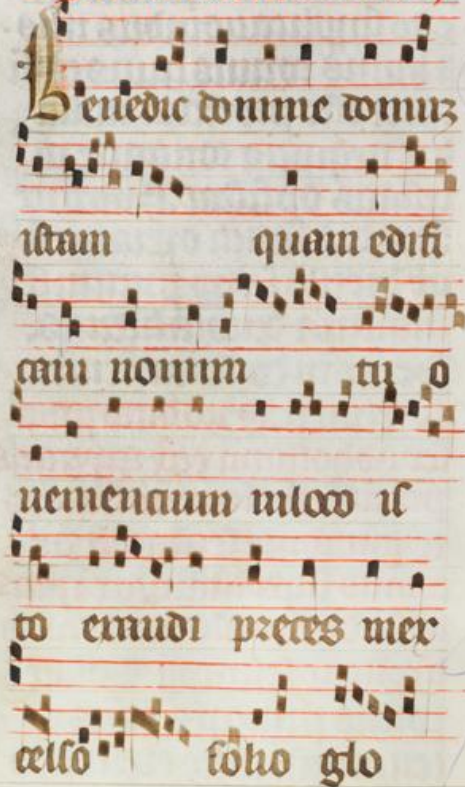 Benedic domine domuz
istam quam edifi
caui nomini tuo
ueniencium inloco is
to exaudi preces inex
celso solio glo